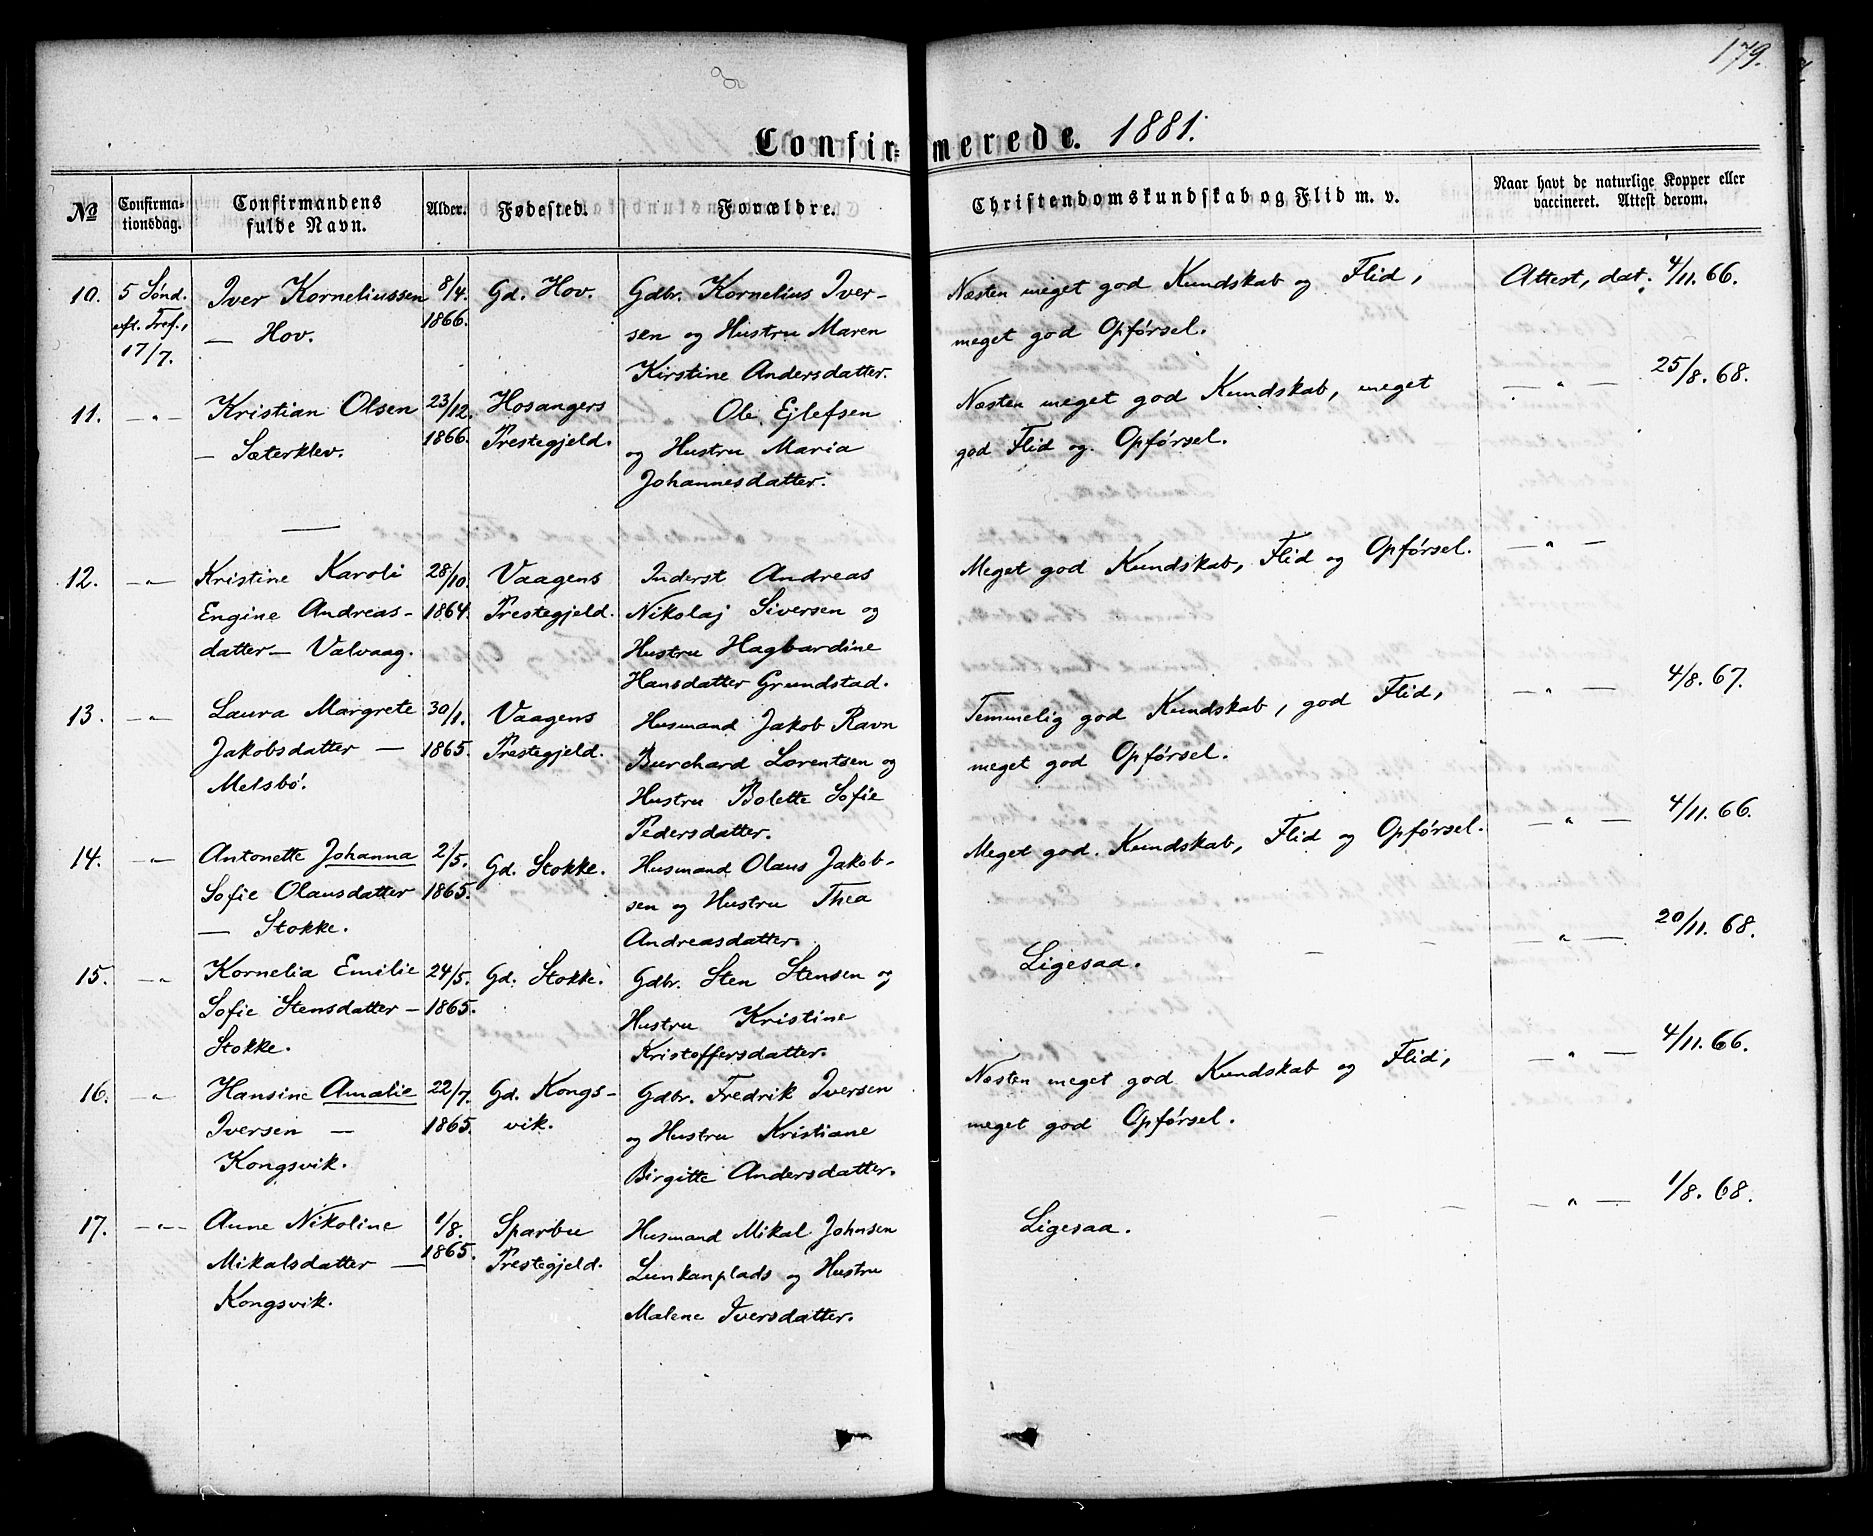 179.
Confirmerede. 1881.
No
Confirmationsdag.
Confirmandens fulde Navn.
Alder.
Fødested.
Forældre.
Christendomskundskab og Flid m. v.
Naar havt de naturlige Kopper eller vaccineret. Attest derom.
10. 5 Sønd. Iver Korneliussen 8/4. Gd. Hov. Gdbr. Kornelius Iver- Næsten meget god Kundskab og Flid, Attest, dat. 4/11. 66.
eft. Tref., — Hov. 1866. sen og Hustru Maren meget god Opførsel.
17/7. Kirstine Andersdatter.
11. —„— Kristian Olsen 23/12. Hosangers Ole Ejlefsen Næsten meget god Kundskab, meget — „ — 25/8. 68.
— Sæterklev. 1866. Prestegjeld. og Hustru Maria god Flid og Opførsel.
Johannesdatter.
—
12. —„— Kristine Karoli 28/10. Vaagens Inderst Andreas Meget god Kundskab, Flid og Opførsel. — „ —
Engine Andreas- 1864. Prestegjeld. Nikolaj Siversen og
datter — Valvaag. Hustru Hagbardine
Hansdatter Grundstad.
13. —„— Laura Margrete 30/1. Vaagens Husmand Jakob Ravn Temmelig god Kundskab, god Flid, — „ — 4/8. 67.
Jakobsdatter — 1865. Prestegjeld. Burchard Lorentsen og meget god Opførsel.
Melsbø. Hustru Bolette Sofie
Pedersdatter.
14. —„— Antonette Johanna 2/5. Gd. Stokke. Husmand Olaus Jakob- Meget god Kundskab, Flid og Opførsel. — „ — 4/11. 66.
Sofie Olausdatter 1865. sen og Hustru Thea
— Stokke. Andreasdatter.
15. —„ Kornelia Emilie 24/5. Gd. Stokke. Gdbr. Sten Stensen og Ligesaa. — — — „ — 20/11. 68.
Sofie Stensdatter — 1865. Hustru Kristine
Stokke. Kristoffersdatter.
16. —„ Hansine Amalie 22/7. Gd. Kongs- Gdbr. Fredrik Iversen Næsten meget god Kundskab og Flid, — „ — 4/11. 66.
Iversen — 1865. vik. og Hustru Kristiane meget god Opførsel.
Kongsvik. Birgitte Andersdatter.
17. —„— Anne Nikoline 1/8. Sparbu Husmand Mikal Johnsen Ligesaa. — — — „ — 1/8. 68.
Mikalsdatter — 1865. Prestegjeld. Lunkanplads og Hustru
Kongsvik. Malene Iversdatter.